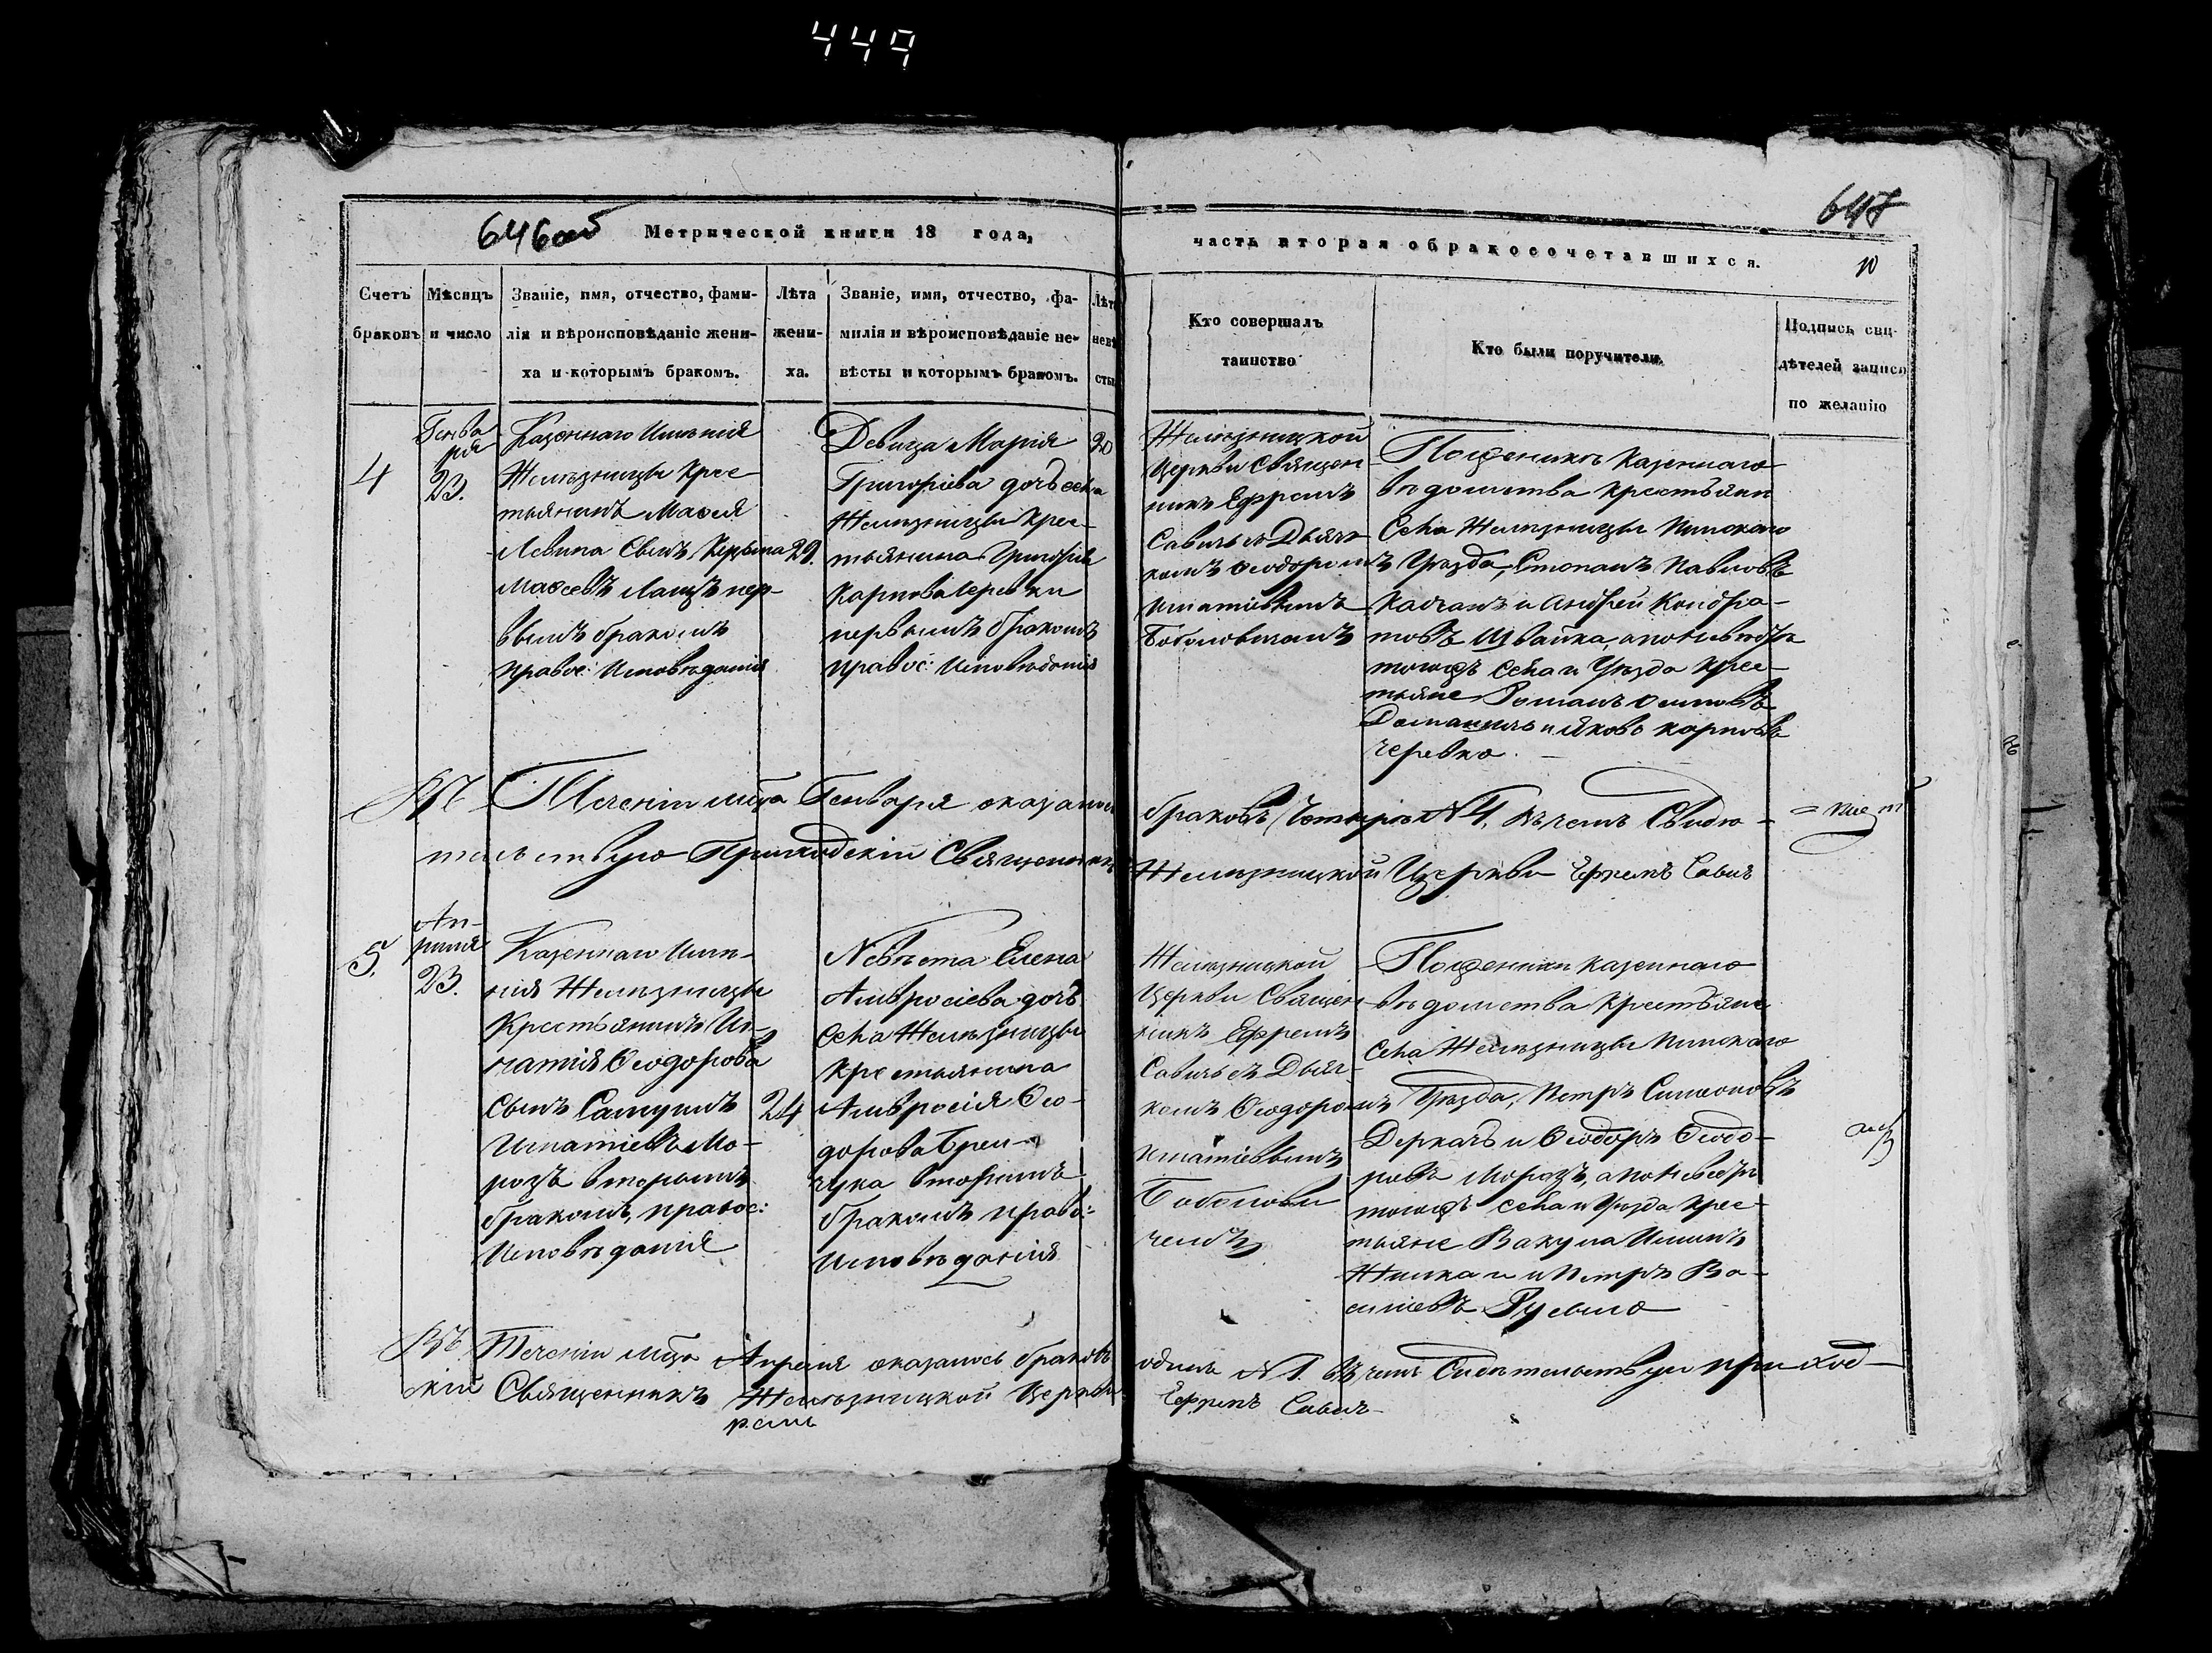 449
646об
Метрической книги 18 года,
часть вторая о бракосочетавшихся.
647
10
Счетъ браковъ
Мѣсяцъ и число
Званіе, имя, отчество, фами-
лія и вѣроисповѣданіе жени-
ха и которымъ бракомъ.
Лѣта
жени-
ха.
Званіе, имя, отчество, фа-
милія и вѣроисповѣданіе не-
вѣсты и которымъ бракомъ.
Лѣта
невѣ
сты
Кто совершалъ
таинство
Кто были поручители.
Подпись сви-
дѣтелей записи
по желанію
4
Генва
ря
23.
Казеннаго Имѣнія
Желѣзницы Крес
тьянинъ
Левина Сынъ
Лащъ пер-
вымъ бракомъ
правос: Исповѣданія
29.
Девица Марія
Григорієва дочь села
Желѣзницы Крес-
тьянина Григорія
Карпова Черевки
первымъ бракомъ
правос: Исповѣданія
20
Желѣзницкой
Церкви Священ
никъ Ефремъ
Савичь съ Дьяч
комъ Ѳеодоромъ
Игнатіевымъ
Боболовичамъ
Поженихѣ казеннаго
вѣдомства крестьяни
Села Желѣзницы Пинскаго
Уѣзда, Степанъ Павловъ
Качанъ и Андрей Кондра-
товъ Швайка, а по невѣстѣ
тогожъ села и Уѣзда крес-
тьяне Романъ Осиповъ
Доманичь и Яковъ Карповъ
Черевко.
Въ Теченіи мѣца Генваря оказалось
браковъ Четыре №4, въ чемъ Свидѣ-
тельствую Приходскій Священникъ
Желѣзницкой Церкви Ефремъ Савичъ
5.
Ап-
рѣля
23.
Казеннаго Имѣ-
нія Желѣзницы
Крестьянинъ Иг-
натія Ѳеодорова
Сынъ
Игнатіевъ Мо-
розъ вторымъ
бракомъ, правос:
Исповѣданія
24
Невѣста Елена
Амвросіева дочь
Села Желѣзницы
крестьянина
Амвросія Ѳео-
дорова Грен-
чука вторымъ
бракомъ право:
Исповѣданія
Желѣзницкой
Церкви Священ
никъ Ефремъ
Савичь съ Дьяч-
комъ Ѳеодоромъ
Игнатіевымъ
Боболови
чемъ
Поженихи казеннаго
вѣдомства крестьяне
Села Желѣзницы Пинскаго
Уѣзда, Петръ Симеоновъ
Деркачъ и Ѳеодоръ Ѳеодо-
ровъ Морозъ, а по невѣстѣ
тогожъ села и Уѣзда крес-
тьяне Вакула
и Петръ Ва-
силіевъ
Въ Теченіи мѣца Апрѣля оказалось браковъ
одинъ №1. Въ чемъ Свидѣтельствую приход-
скій Священникъ Желѣзницкой Церкви
Ефремъ Савичъ